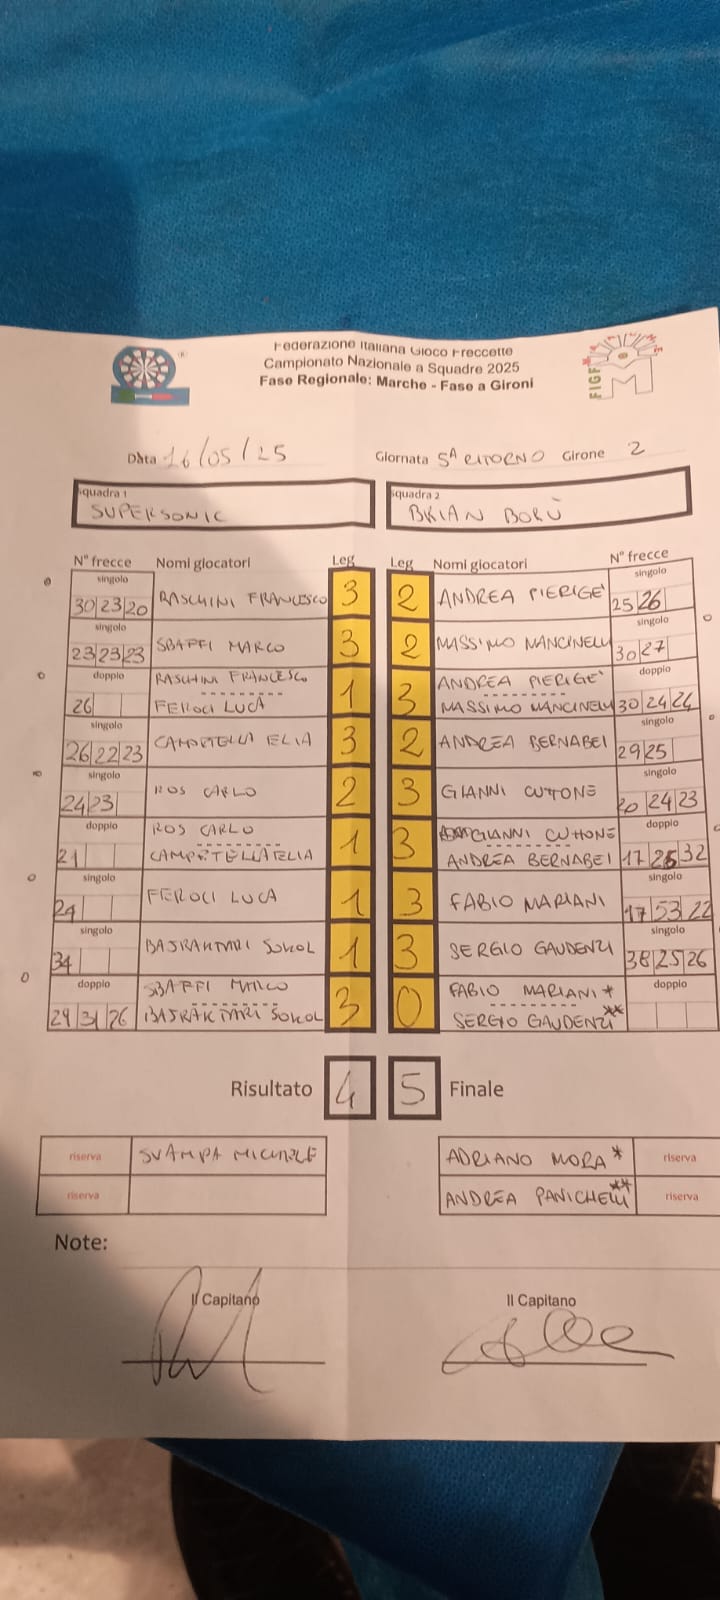 Federazione Italiana Gioco Freccette
Campionato Nazionale a Squadre 2025
Fase Regionale: Marche - Fase a Gironi
FIGF
Data 16/05/25 Giornata 5ª RITORNO Girone 2
squadra 1 squadra 2
SUPERSONIC BRIAN BORÙ
N° frecce Nomi giocatori Leg Leg Nomi giocatori N° frecce
singolo singolo
30 23 20 RASCHINI FRANCESCO 3 2 ANDREA PIERIGE' 25 26
singolo singolo
23 23 23 SBAFFI MARCO 3 2 MASSIMO MANCINELLI 30 27
doppio RASCHINI FRANCESCO ANDREA PIERIGE' doppio
26 FEROCI LUCA 1 3 MASSIMO MANCINELLI 30 24 24
singolo singolo
26 22 23 CAMPETELLA ELIA 3 2 ANDREA BERNABEI 29 25
singolo singolo
24 23 ROS CARLO 2 3 GIANNI CUTTONE 20 24 23
doppio ROS CARLO GIANNI CUTTONE doppio
21 CAMPETELLA ELIA 1 3 ANDREA BERNABEI 17 25 32
singolo singolo
24 FEROCI LUCA 1 3 FABIO MARIANI 17 53 22
singolo singolo
34 BAJRAKTARI SOKOL 1 3 SERGIO GAUDENZI 38 25 26
doppio SBAFFI MARCO FABIO MARIANI * doppio
29 31 26 BAJRAKTARI SOKOL 3 0 SERGIO GAUDENZI **
Risultato 4 5 Finale
riserva SVAMPA MICHELE ADRIANO MORA * riserva
riserva ANDREA PANICHELLI ** riserva
Note:
Il Capitano Il Capitano